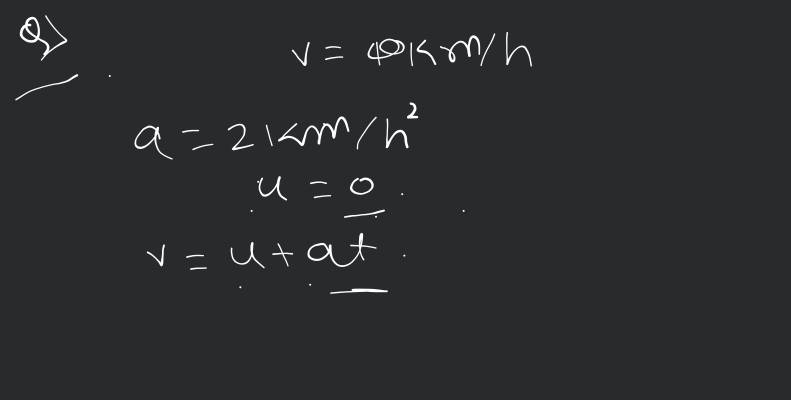 Q>
v = 40Km/h
a = 2Km/h²
u = 0.
v = u + at.